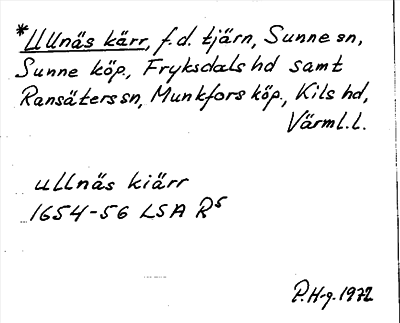 *Ullnäs kärr, f.d. tjärn, Sunne sn,
Sunne köp., Fryksdals hd samt
Ransäters sn, Munkfors köp., Kils hd,
Värml. l.
ullnäs kiärr
1654-56 LSA R5
P.H-g. 1972